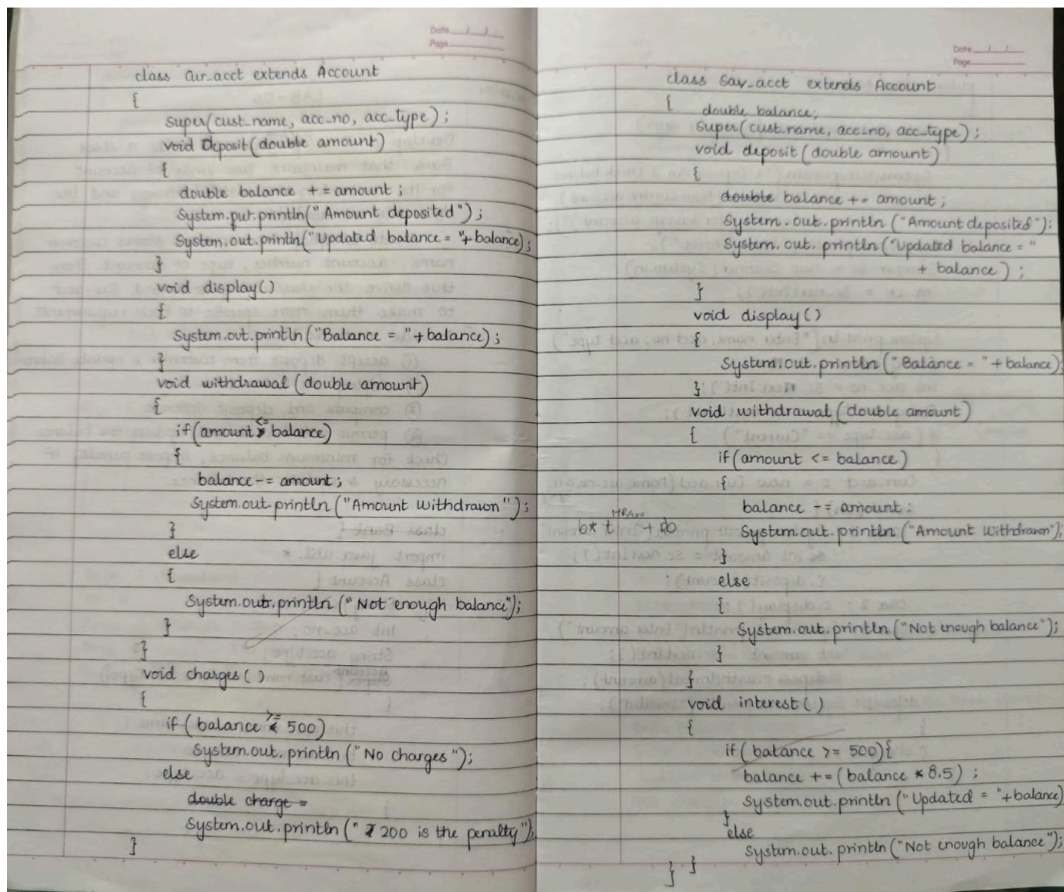 Date / /
Page
class Cur_acct extends Account
{
super(cust_name, acc_no, acc_type);
void Deposit(double amount)
{
double balance += amount;
System.out.println("Amount deposited");
System.out.println("Updated balance = "+balance);
}
void display()
{
System.out.println("Balance = "+balance);
}
void withdrawal(double amount)
{
if(amount <= balance)
{
balance -= amount;
System.out.println("Amount withdrawn");
}
else
{
System.out.println("Not enough balance");
}
}
void charges()
{
if(balance >= 500)
System.out.println("No charges");
else
double charge =
System.out.println("₹200 is the penalty")
}
Date / /
Page
class Sav_acct extends Account
{
double balance;
super(cust_name, acc_no, acc_type);
void deposit(double amount)
{
double balance += amount;
System.out.println("Amount deposited");
System.out.println("Updated balance = "
+ balance);
}
void display()
{
System.out.println("Balance = "+balance);
}
void withdrawal(double amount)
{
if(amount <= balance)
{
balance -= amount;
System.out.println("Amount withdrawn");
}
else
{
System.out.println("Not enough balance");
}
}
void interest()
{
if(balance >= 500){
balance += (balance * 8.5);
System.out.println("Updated = "+balance)
}
else
System.out.println("Not enough balance");
}
}